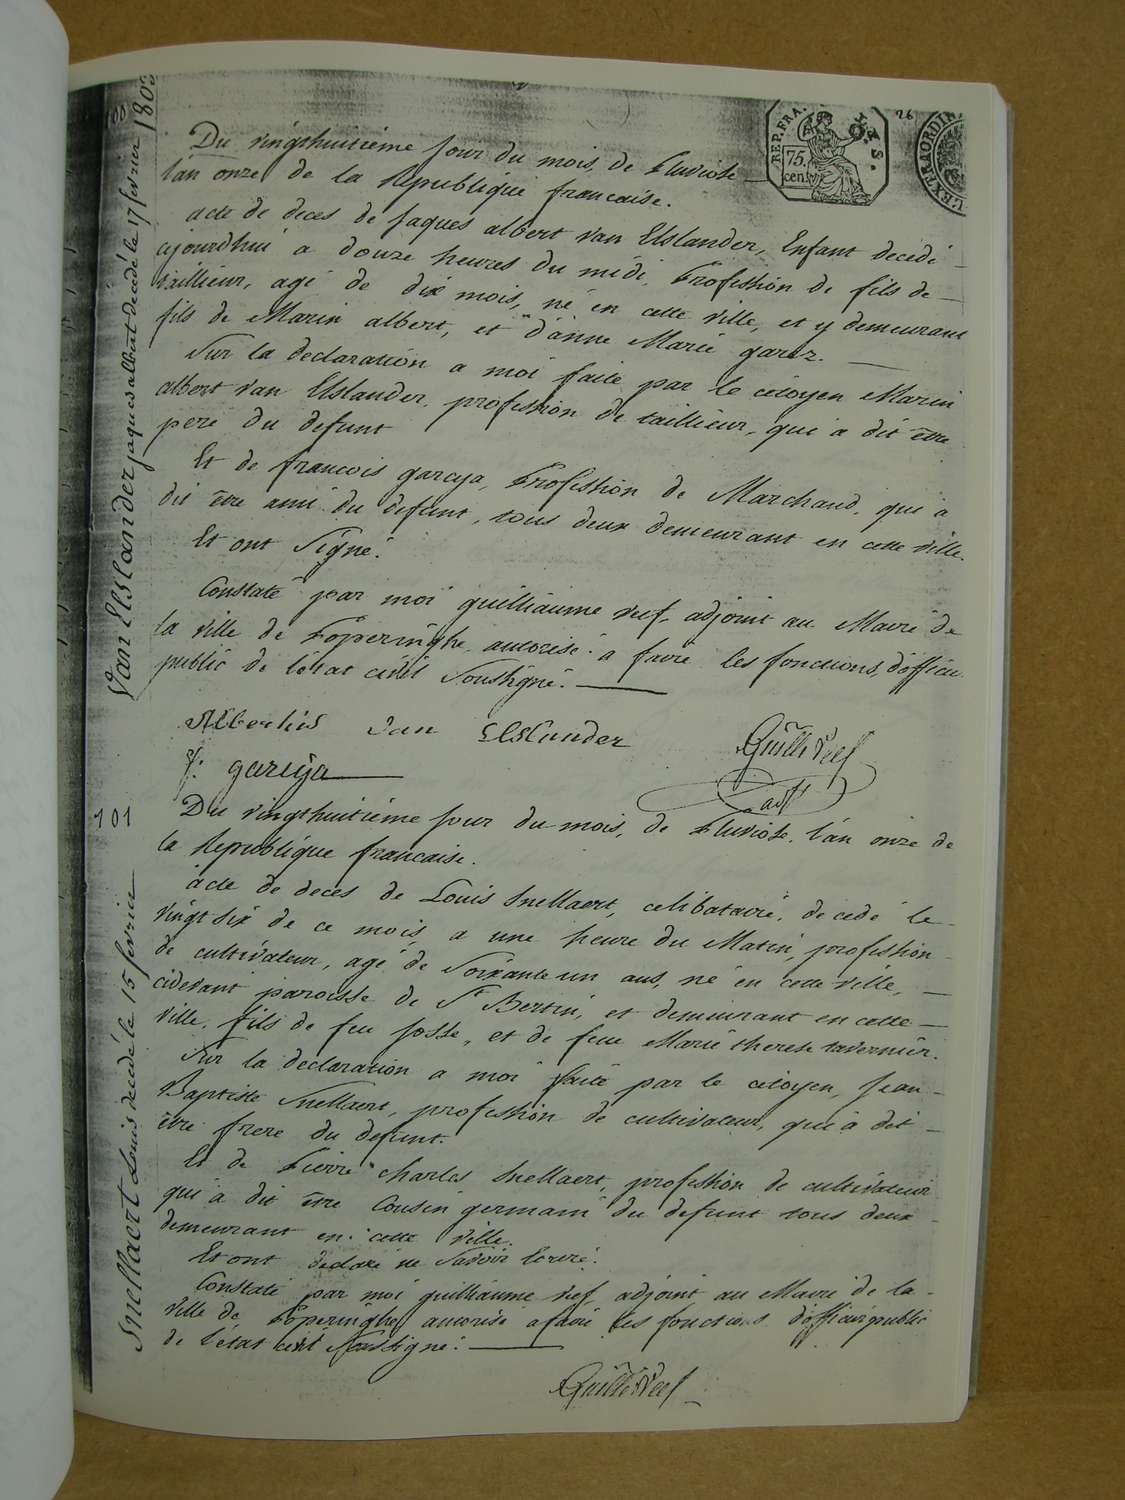 100
26
REP. FRA.
75
cent
L'EXTRAORDIN
Van Elslander jaques albert decedé le 17 fevrier 1803
Du vingthuitiéme jour du mois, de Pluviose
l'an onze de la Republique francaise.
acte de deces de jaques albert van Elslander, Enfant decedé
ajourdhui a douze heures du midi, Profession de fils de
taillieur, agé de dix mois, né en cette ville, et y demeurant
fils de Marin albert, et d'anne Marie garez.
Sur la declaration a moi faite par le citoyen Marin
albert van Elslander, profession de taillieur, qui a dit être
pere du defunt
Et de francois garcya, Profession de Marchand, qui a
dit être ami du defunt, tous deux demeurant en cette ville.
Et ont Signé.
Constaté par moi guilliaume vef, adjoint au Maire de
la ville de Poperinghe, autorisé a faire les fonctions, d'officier
public de l'etat civil Soussigné.
Albertus van Elslander
f: garcya
Guille Veef
adjt
101
Snellaert Louis decedé le 15 fevrier
Du vingthuitiéme jour du mois, de Pluviose, l'an onze de
la Republique francaise.
acte de deces de Louis Snellaert, celibataire, decedé le
vingt six de ce mois, a une heure du Matin, profession
de cultivateur, agé de Soixante un ans, né en cette ville,
cidevant paroisse de St Bertin, et demeurant en cette
ville, fils de feu Josse, et de feue Marie therese tavernier.
Sur la declaration a moi faite par le citoyen, Jean
Baptiste Snellaert, profession de cultivateur, qui a dit
être frere du defunt.
Et de Pierre Charles Snellaert, profession de cultivateur
qui a dit être Cousin germain du defunt tous deux
demeurant en cette ville.
Et ont declaré ne Savoir Ecrire.
Constaté par moi guilliaume vef, adjoint au Maire de la
ville de Poperinghe, autorisé a faire les fonctions d'officier public
de l'etat civil Soussigné.
Guille Veef